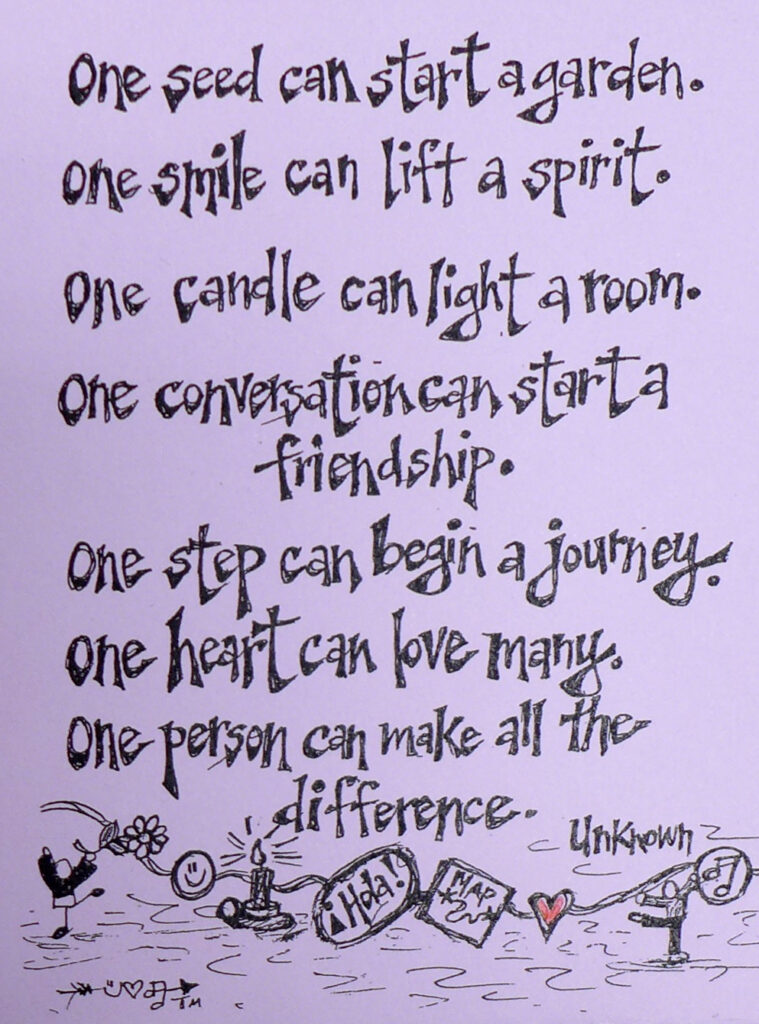 One seed can start a garden.
One smile can lift a spirit.
One candle can light a room.
One conversation can start a
friendship.
One step can begin a journey.
One heart can love many.
One person can make all the
difference.
Unknown
¡Hola!
MAP
TM